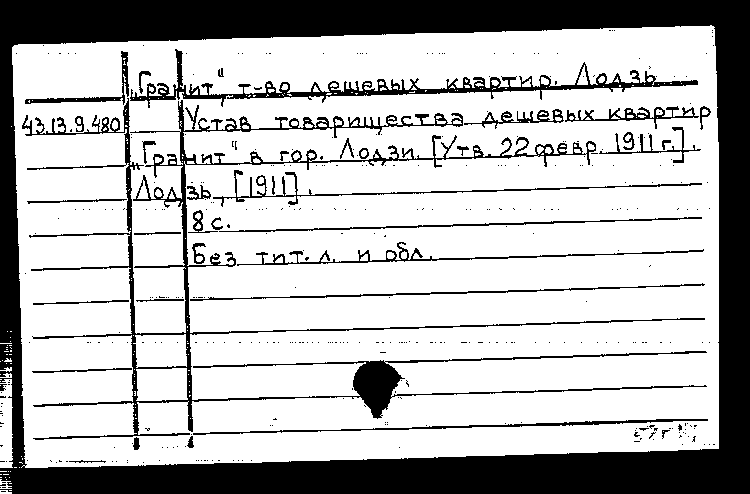 „Гранит", т-во дешевых квартир. Лодзь
43.13.9.480 Устав товарищества дешевых квартир
„Гранит" в гор. Лодзи. [Утв. 22 февр. 1911 г.].
Лодзь, [1911].
8 с.
Без тит. л. и обл.